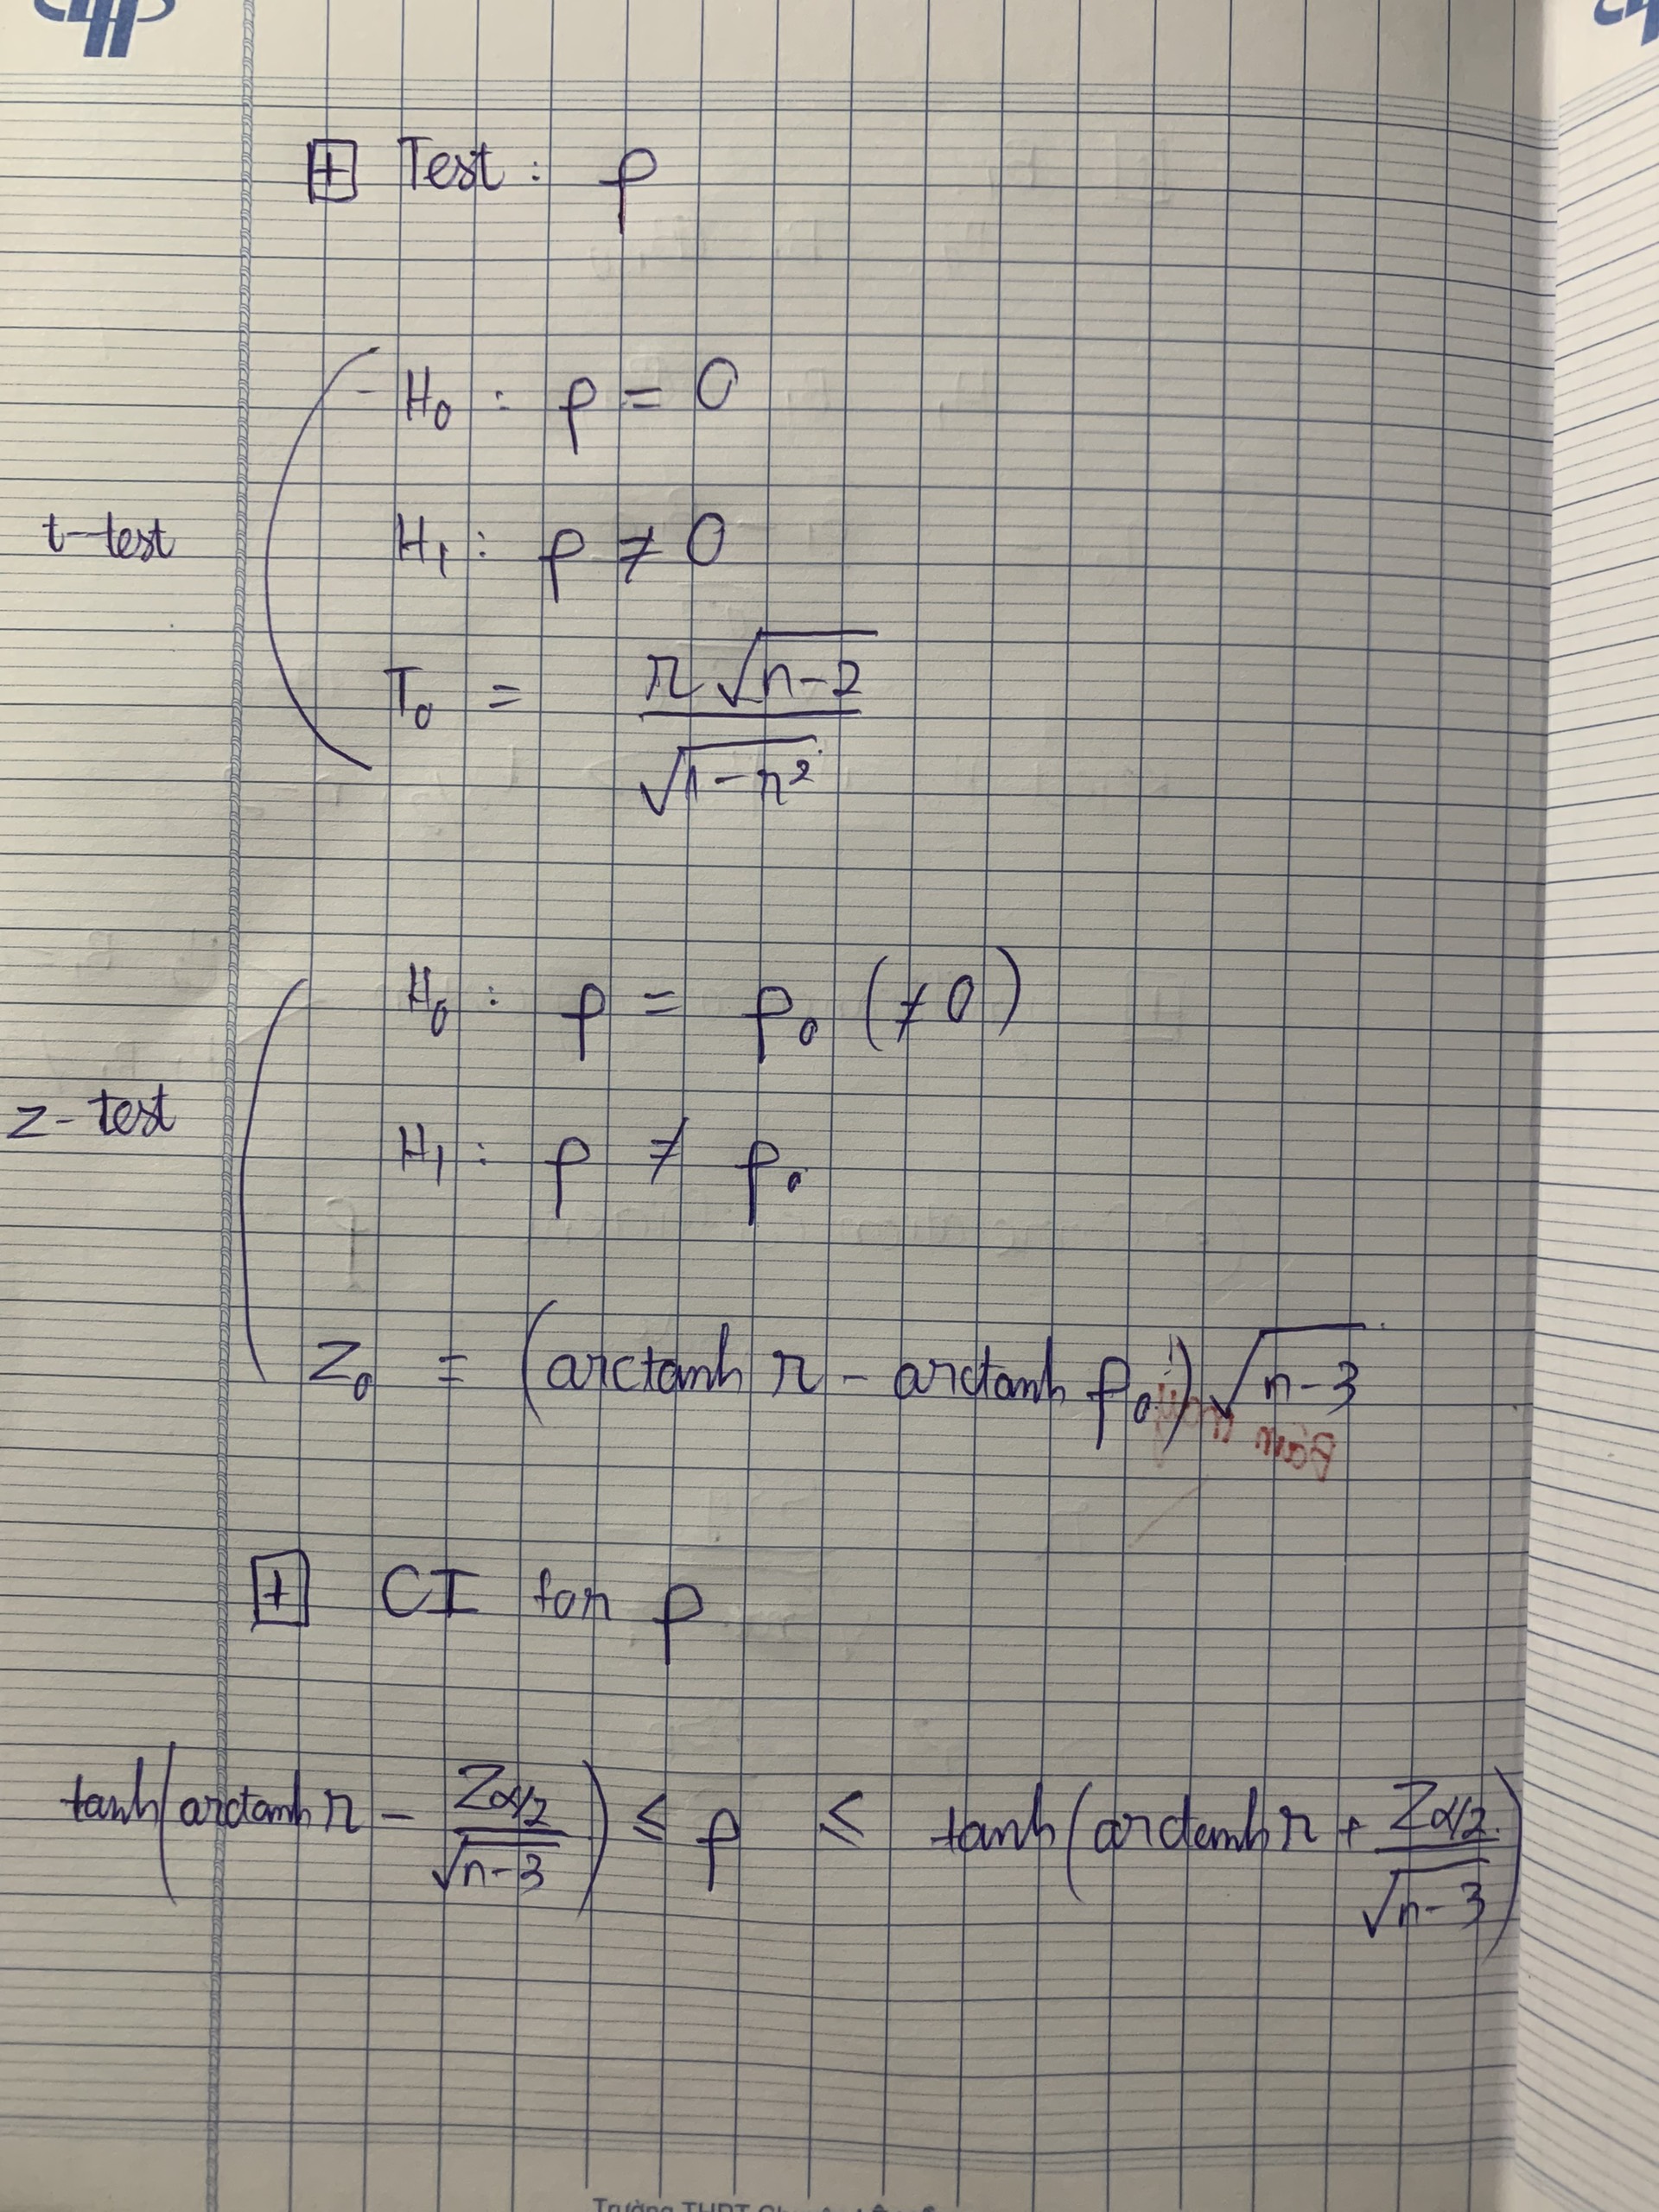 ⊞ Test: ρ
- H₀ : ρ = 0
t-test
H₁ : ρ ≠ 0
T₀ = r √(n-2) / √(1-r²)
H₀ : ρ = ρ₀ (≠ 0)
z-test
H₁ : ρ ≠ ρ₀
Z₀ = (arctanh r - arctanh ρ₀) √(n-3)
⊞ CI for ρ
tanh(arctanh r - Z_{α/2} / √(n-3)) ≤ ρ ≤ tanh(arctanh r + Z_{α/2} / √(n-3))
Trường THPT